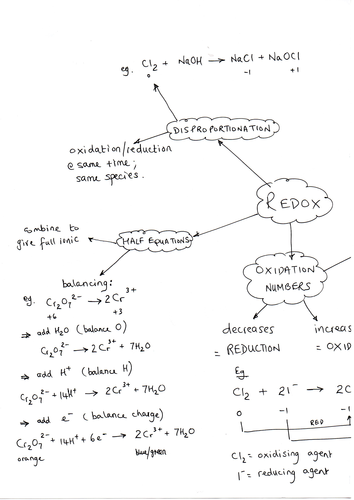 eg. Cl2 + NaOH → NaCl + NaOCl
0 -1 +1
DISPROPORTIONATION
oxidation/reduction
@ same time;
same species.
REDOX
combine to
give full ionic
HALF EQUATIONS
OXIDATION
NUMBERS
balancing:
eg. Cr2O7 2- → 2Cr 3+
+6 +3
⇒ add H2O (balance O)
Cr2O7 2- → 2Cr 3+ + 7H2O
⇒ add H+ (balance H)
Cr2O7 2- + 14H+ → 2Cr 3+ + 7H2O
⇒ add e- (balance charge)
Cr2O7 2- + 14H+ + 6e- → 2Cr 3+ + 7H2O
orange blue/green
decreases
= REDUCTION
increas
= OXID
Eg
Cl2 + 2I- → 2C
0 -1 -1
RED
Cl2 = oxidising agent
I- = reducing agent